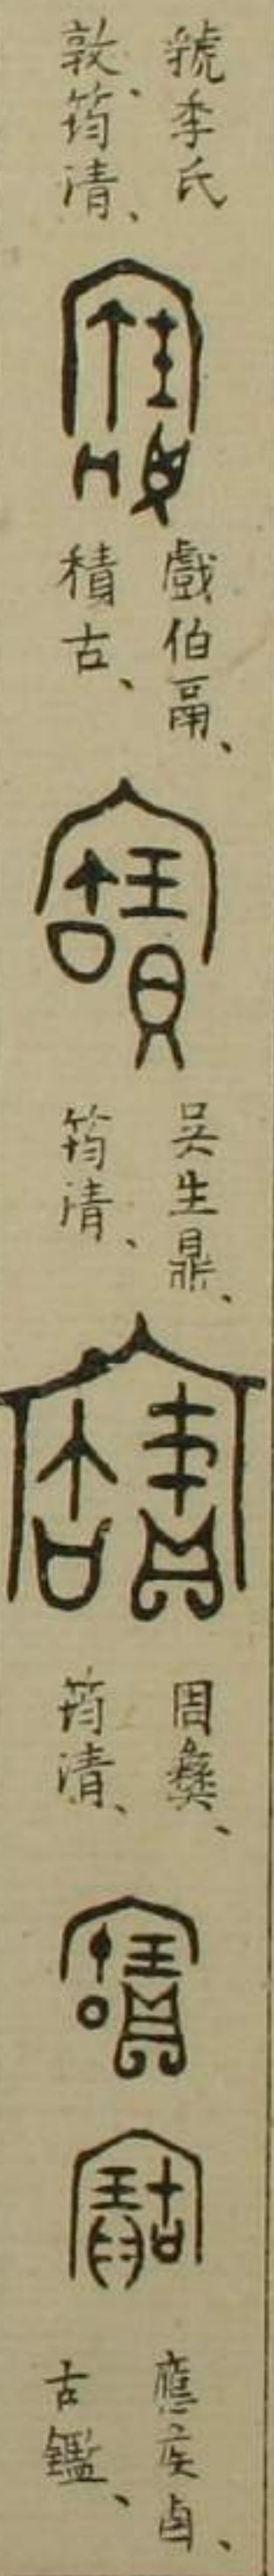 虢季氏
敦、筠清、
寶
戲伯鬲、
積古、
寶
吳生鼎、
筠清、
寶
周彝、
筠清、
寶
寶
應矦卣、
古鑑、